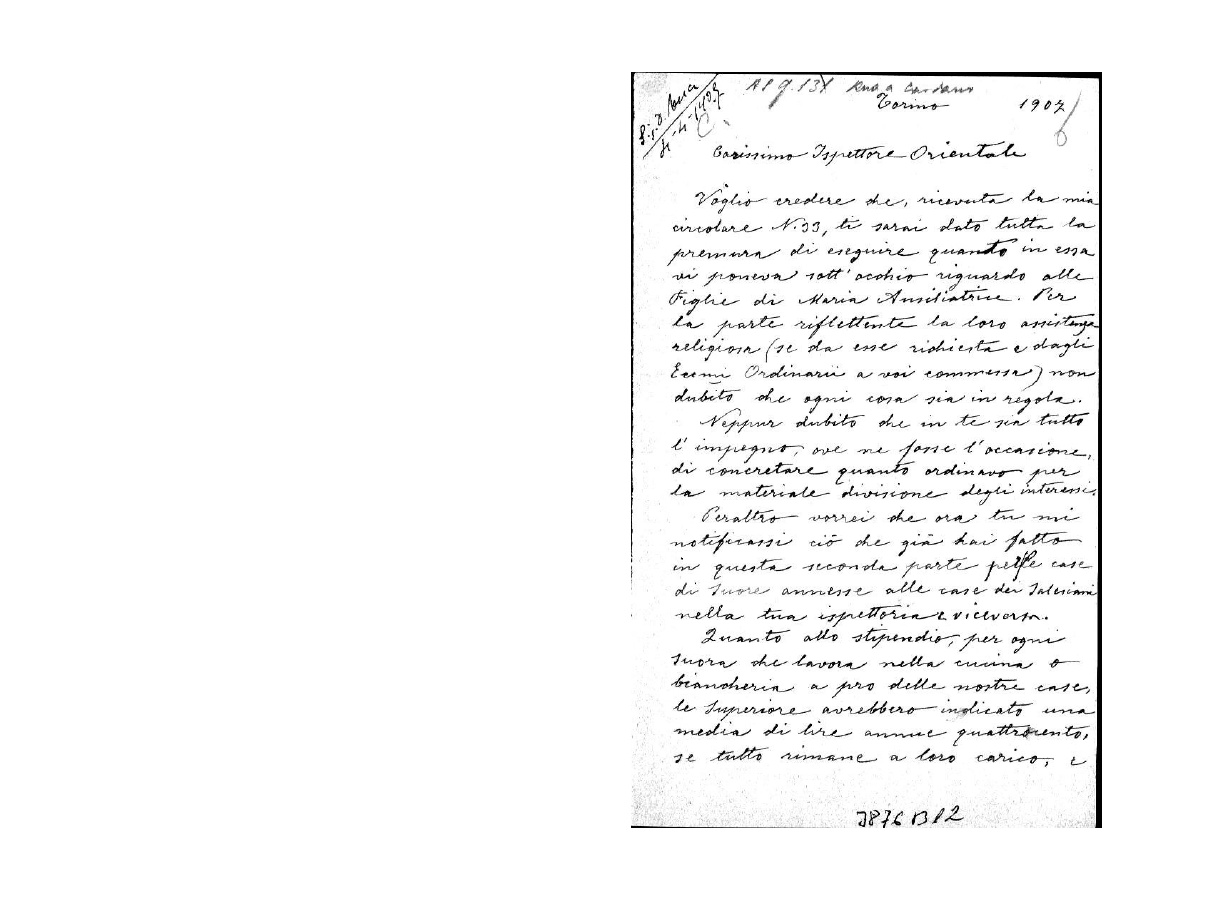 Sig. D. Rua
4-4-1907
C.
AS 9.131 Rua a Cardano
Torino 1907
6
Carissimo Ispettore Orientale
Voglio credere che, ricevuta la mia
circolare N. 33, ti sarai dato tutta la
premura di eseguire quanto in essa
vi poneva sott'occhio riguardo alle
Figlie di Maria Ausiliatrice. Per
la parte riflettente la loro assistenza
religiosa (se da esse richiesta e dagli
Ecc.mi Ordinarii a voi commessa) non
dubito che ogni cosa sia in regola.
Neppur dubito che in te sia tutto
l'impegno, ove ne fosse l'occasione,
di concretare quanto ordinavo per
la materiale divisione degli interessi.
Peraltro vorrei che ora tu mi
notificassi ciò che già hai fatto
in questa seconda parte per le case
di Suore annesse alle case dei Salesiani
nella tua ispettoria e viceversa.
Quanto allo stipendio, per ogni
Suora che lavora nella cucina o
biancheria a pro delle nostre case,
le Superiore avrebbero indicato una
media di lire annue quattrocento,
se tutto rimane a loro carico, e
3876 B12